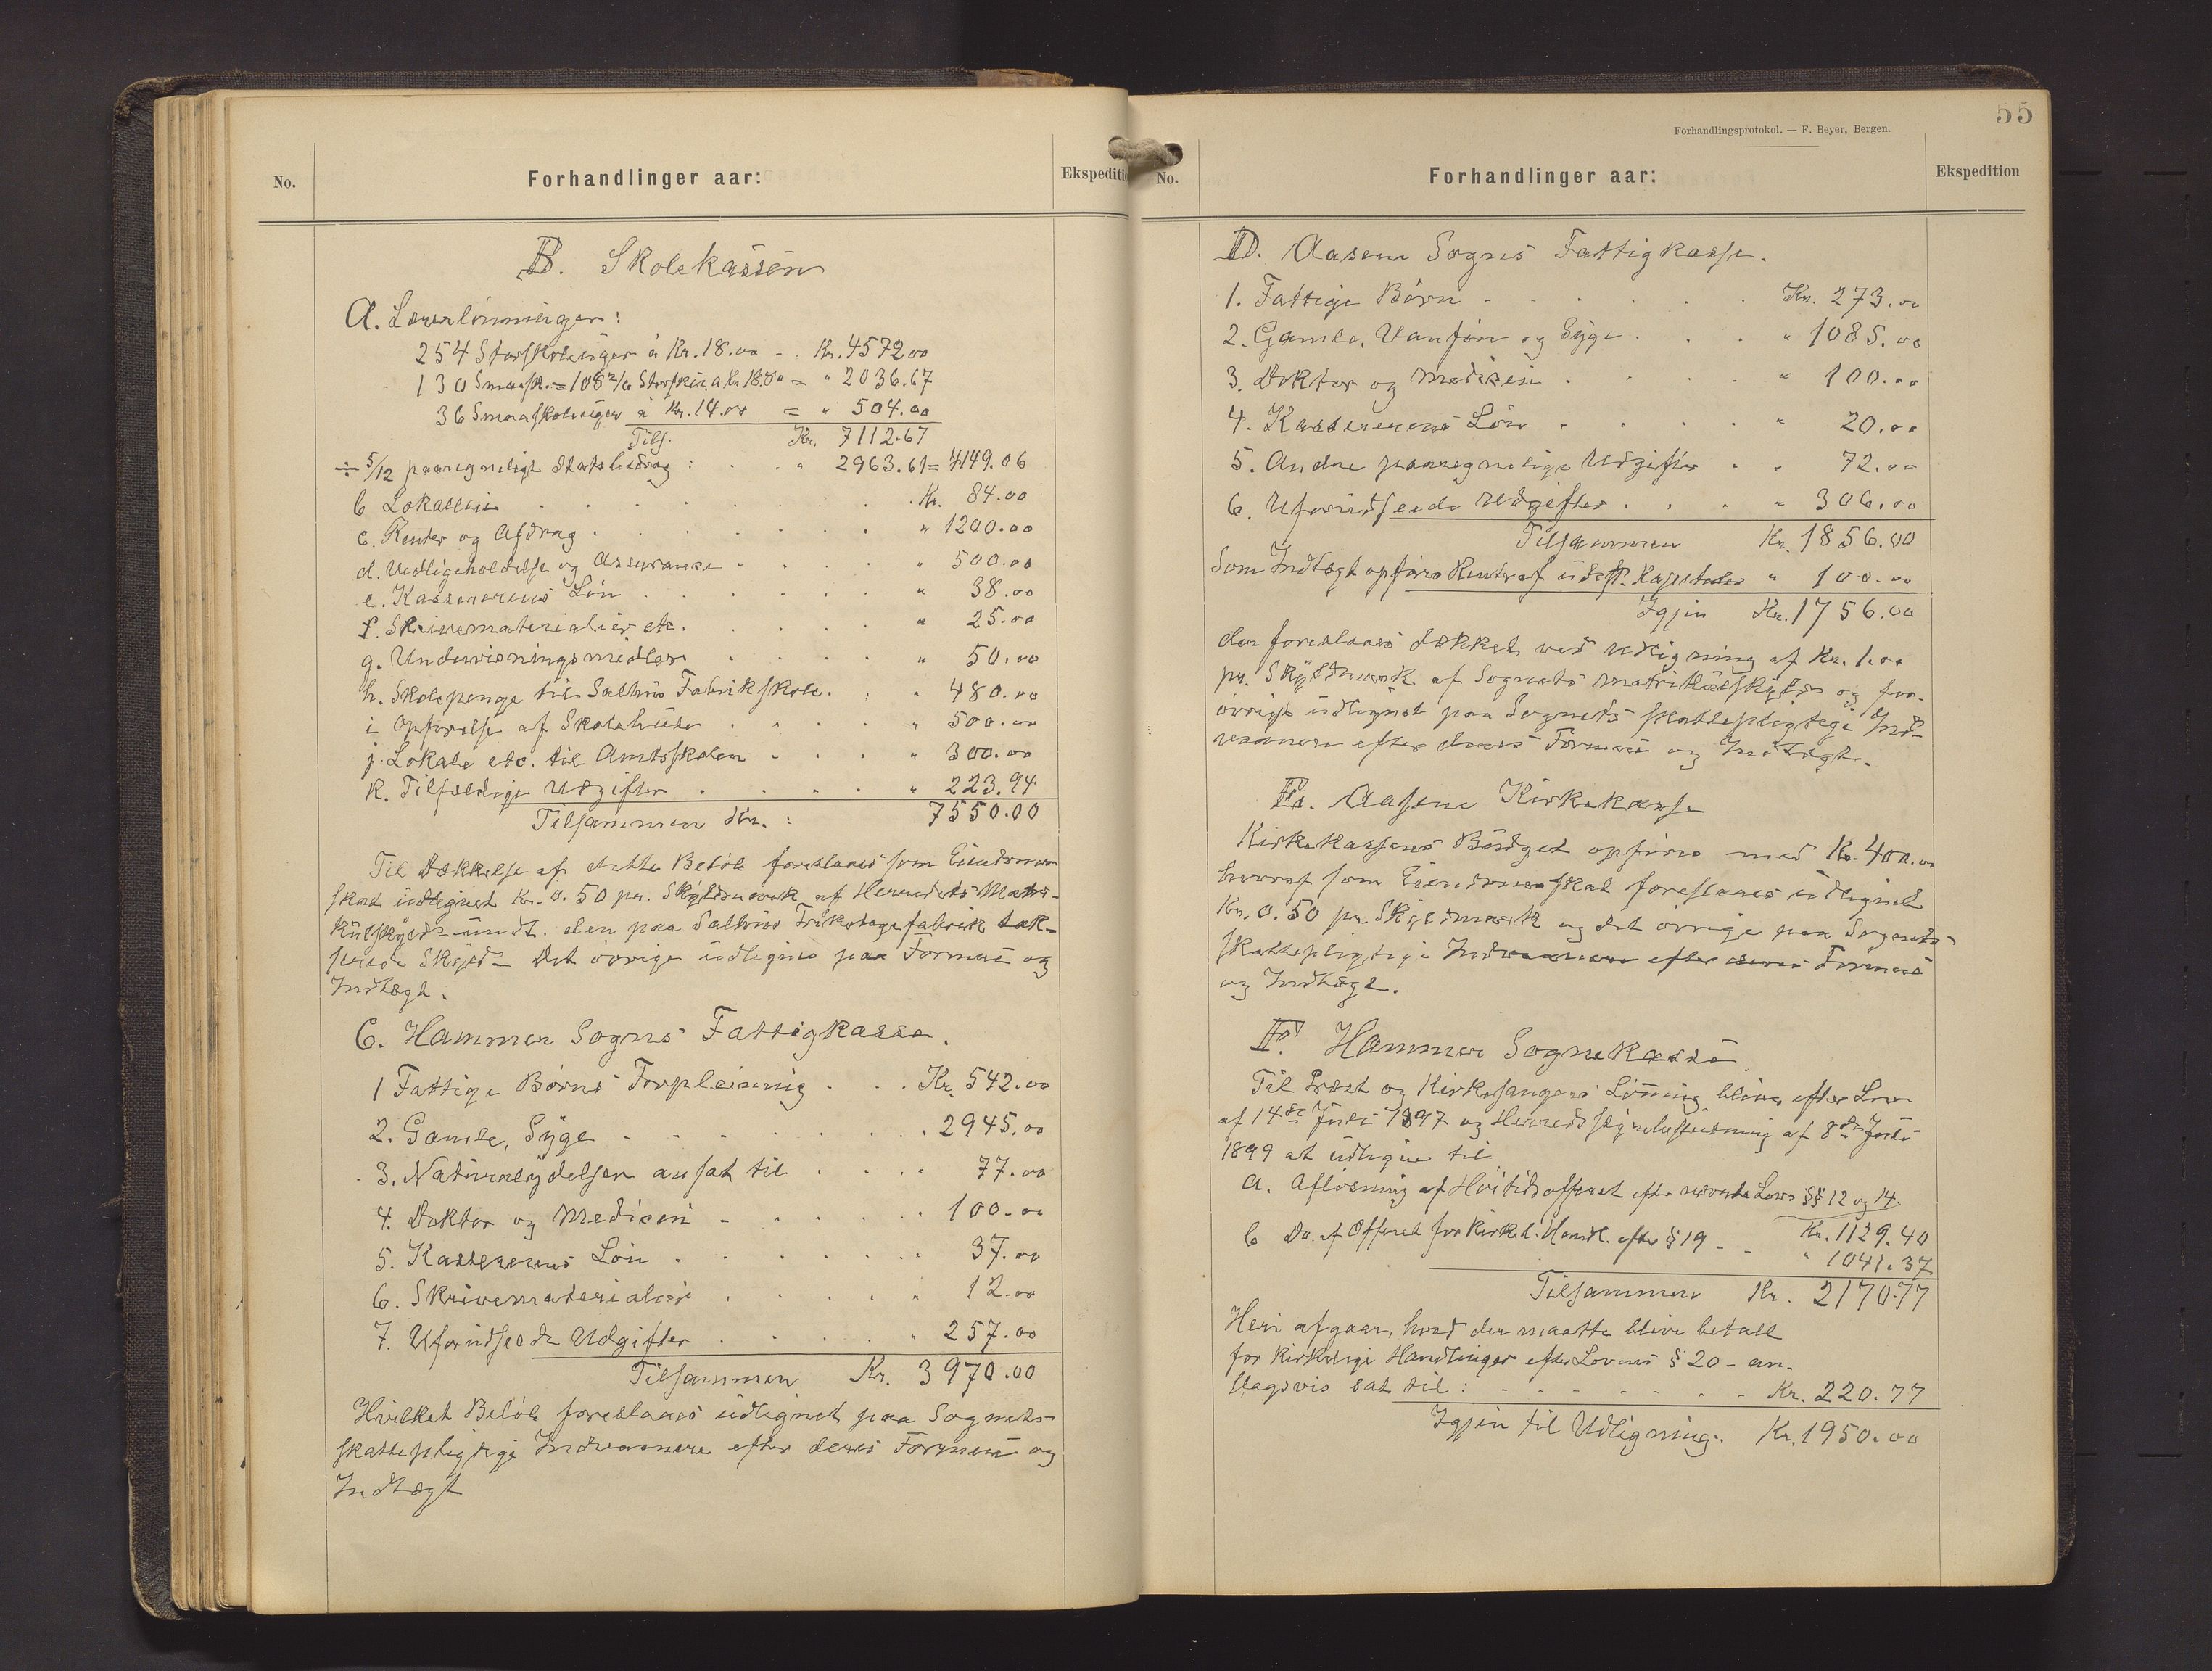 No.
Forhandlinger aar:
Ekspeditio
B. Skolekassen
A. Lærerlønninger:
254 Storskoleuger à Kr. 18.00 - . Kr. 4572.00
130 Smaask. = 108 2/6 Storsk. à Kr 18.80 = " 2036.67
36 Smaaskoleuger à Kr. 14.00 = " 504.00
Tils. Kr. 7112.67
÷ 5/12 paaregneligt Statsbidrag : . . " 2963.61 = 4149.06
b Lokaleie . . . . . . . Kr. 84.00
c. Renter og Afdrag . . . . . " 1200.00
d. Vedligeholdelse og Assurance . . . . " 500.00
e. Kassererens Løn . . . . . " 38.00
f. Skrivematerialier etc. . . . . " 25.00
g. Undervisningsmidler . . . . " 50.00
h. Skolepenge til Salhus Fabrikskole. . . " 480.00
i Opførelse af Skolehuse . . . . " 500.00
j. Lokale etc. til Amtsskolen . . . " 300.00
k. Tilfældige Udgifter . . . . " 223.94
Tilsammen Kr. : 7550.00
Til Dækkelse af dette Beløb foreslaaes som Eiendoms-
skat udlignet Kr. 0.50 pr. Skyldmark af Herredets Matri-
kulskyld - undt. den paa Salhus Trikotagefabrik hæf-
tende Skyld - Det øvrige udlignes paa Formue og
Indtægt.
C. Hammer Sogns Fattigkasse.
1 Fattige Børns Forpleining . . . Kr. 542.00
2. Gamle, Syge . . . . . . . 2945.00
3. Naturalydelser ansat til . . . . 77.00
4. Doktor og Medicin . . . . . 100.00
5. Kassererens Løn . . . . . . 37.00
6. Skrivematerialier . . . . . 12.00
7. Uforudseede Udgifter . . . . . 257.00
Tilsammen Kr. 3970.00
Hvilket Beløb foreslaaes udlignet paa Sognets
skattepligtige Indvaanere efter deres Formue og
Indtægt
55
Forhandlingsprotokol. — F. Beyer, Bergen.
No.
Forhandlinger aar:
Ekspedition
D. Aasene Sogns Fattigkasse.
1. Fattige Børn . . . . . . Kr. 273.00
2. Gamle, Vanføre og Syge . . . " 1085.00
3. Doktor og Medicin . . . . " 100.00
4. Kassererens Løn . . . . " 20.00
5. Andre paaregnelige Udgifter . " 72.00
6. Uforudseede Udgifter . . . " 306.00
Tilsammen Kr. 1856.00
Som Indtægt opføres Renter af udest. Kapitaler " 100.00
Igjen Kr. 1756.00
der foreslaaes dækket ved Udligning af Kr. 1.00
pr. Skyldmark af Sognets Matrikulskyld og for-
øvrigt udlignet paa Sognets skattepligtige Ind-
vaanere efter deres Formue og Indtægt.
E. Aasene Kirkekasse
Kirkekassens Budget opføres med Kr. 400.00
hvoraf som Eiendomsskat foreslaaes udlignet
Kr. 0.50 pr. Skyldmark og det øvrige paa Sognets
skattepligtige Indvaanere efter deres Formue
og Indtægt.
F. Hammer Sognekasse
Til Præst og Kirkesangers Lønning bliver efter Lov
af 14de Juli 1897 og Herredsstyrelsesbeslutning af 8de Juli
1899 at udligne til
a. Afløsning af Høitidsofferet efter nævnte Lovs §§ 12 og 14.
Kr. 1129.40
b Do. af Offeret for Kirkel. Handl. efter § 19 - - " 1041.37
Tilsammen Kr. 2170.77
Heri afgaar, hvad der maatte blive betalt
for kirkelige Handlinger efter Lovens § 20 - an-
slagsvis sat til : - - - - - - - Kr. 220.77
Igjen til Udligning. Kr. 1950.00